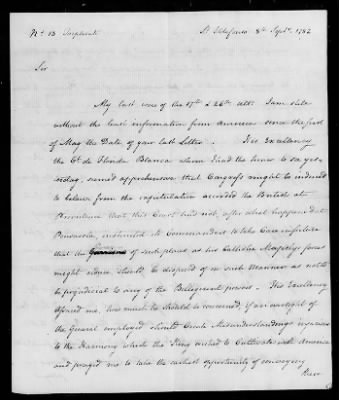 No. 13 Duplicate St. Ildefonso 8th Septr. 1782
Sir
My last were of the 17th & 26th Ulto. I am still
without the least information from America since the first
of May the Date of your last Letter. His Excellency
the Ct. de Florida Blanca whom I had the honor to see yes-
terday, seemed apprehensive that Congress might be induced
to believe from the capitulation accorded the British at
Providence that this Court had not, after what happened at
Pensacola, instructed its Commanders to take Care in future
that the Garrisons of such places as his Catholic Majestys forces
might reduce should be disposed of in such Manner as not to
be prejudicial to any of the Belligerent powers. His Excellency
assured me, how much he should be concerned, if an oversight of
the General employed should Create Misunderstandings injurious
to the Harmony which the King wished to Cultivate with America
and prayed me to take the earliest opportunity of conveying